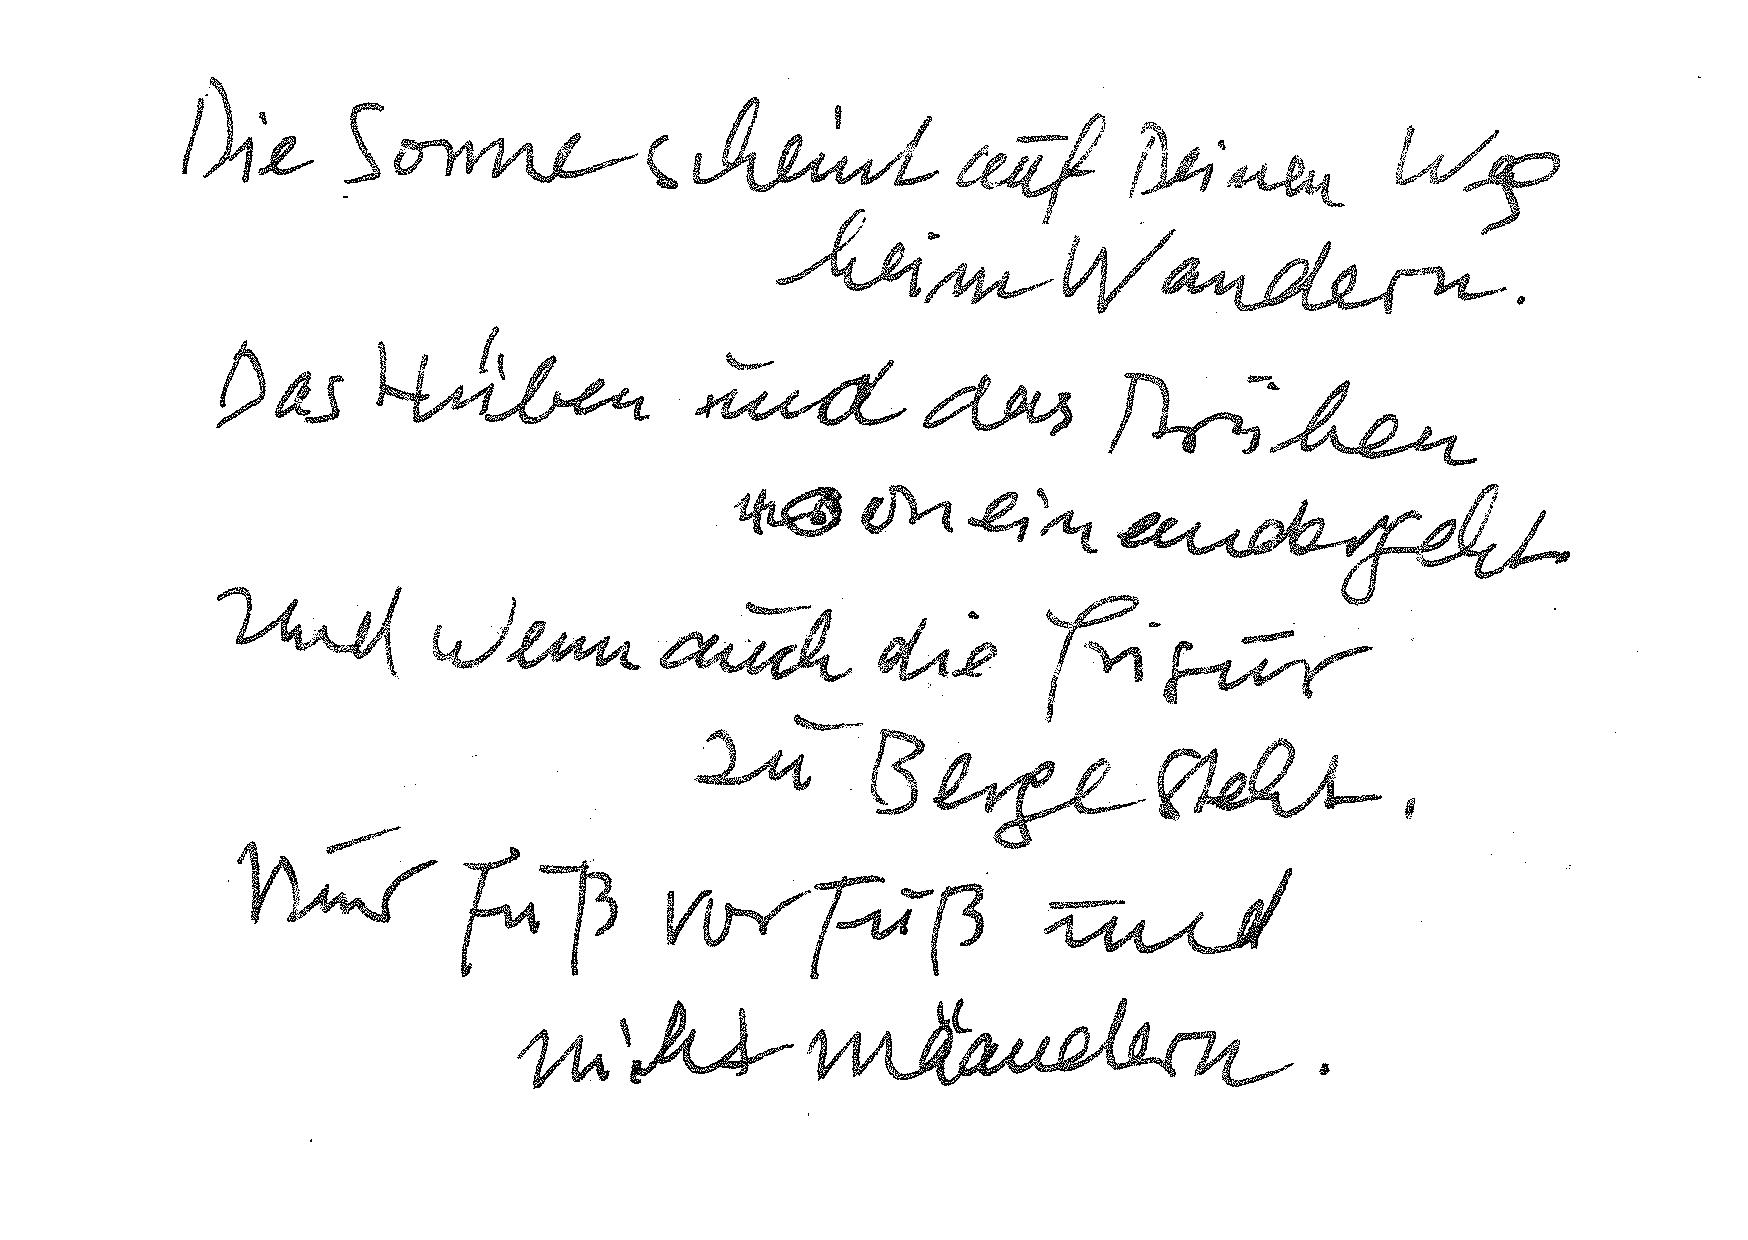 Die Sonne scheint auf Deinen Weg
beim Wandern.
Das Hüben und das Drüben
voneinandergeht
Und wenn auch die Frisur
zu Berge steht.
Nur Fuß vor Fuß und
nicht mäandern.